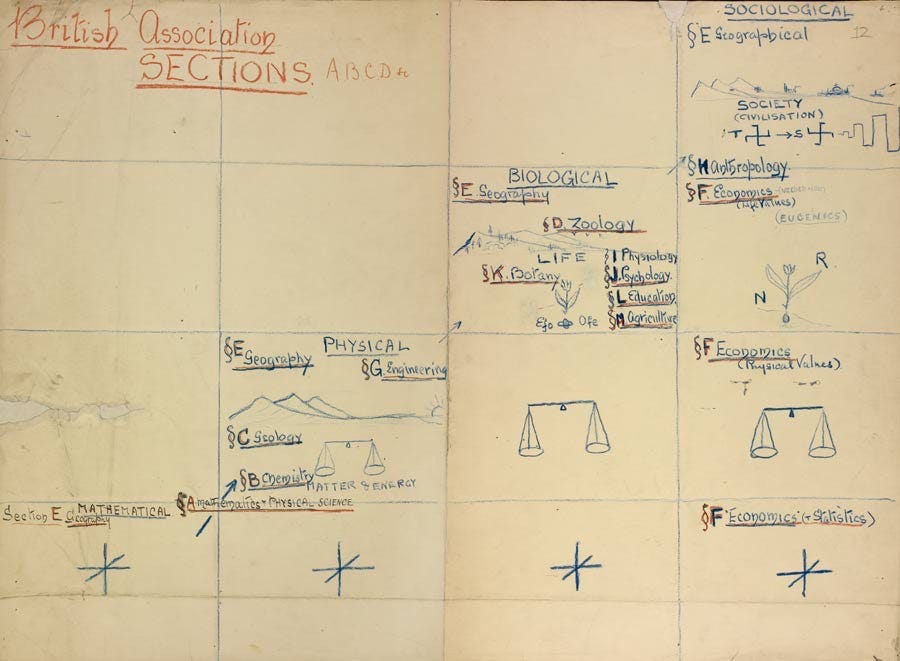 British Association
SECTIONS. A B C D &c
SOCIOLOGICAL
§E Geographical
12
SOCIETY
(CIVILISATION)
T → S
§H anthropology.
§F. Economics
(Life Values)
(EUGENICS)
N R
BIOLOGICAL
§E. Geography
§D. Zoology
LIFE
§I Physiology
§K. Botany
§J. Psychology.
§L Education
§M Agriculture
Efo Ofe
PHYSICAL
§E Geography
§G. Engineering
§C Geology
§B Chemistry
MATTER & ENERGY
§A mathematics + PHYSICAL SCIENCE
§F Economics
(Physical Values)
MATHEMATICAL
Section E Geography
§F "Economics" (+ Statistics)